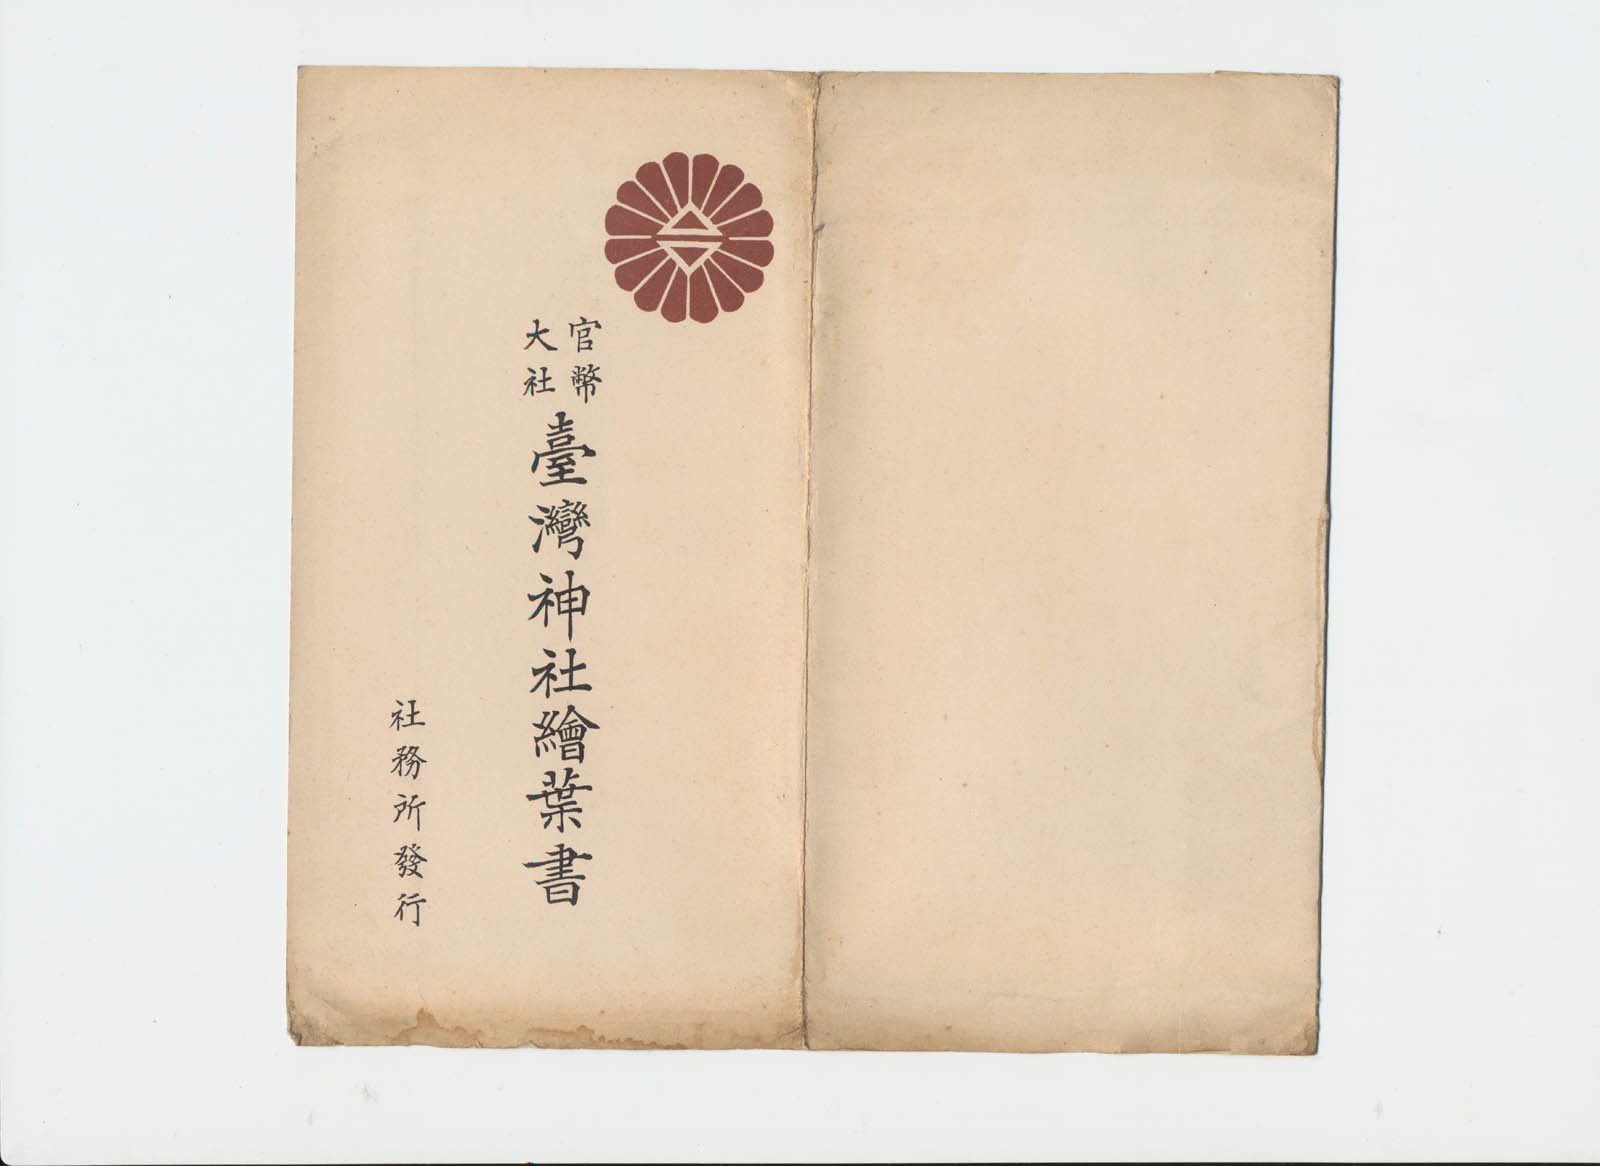 官幣
大社
臺灣神社繪葉書
社務所發行